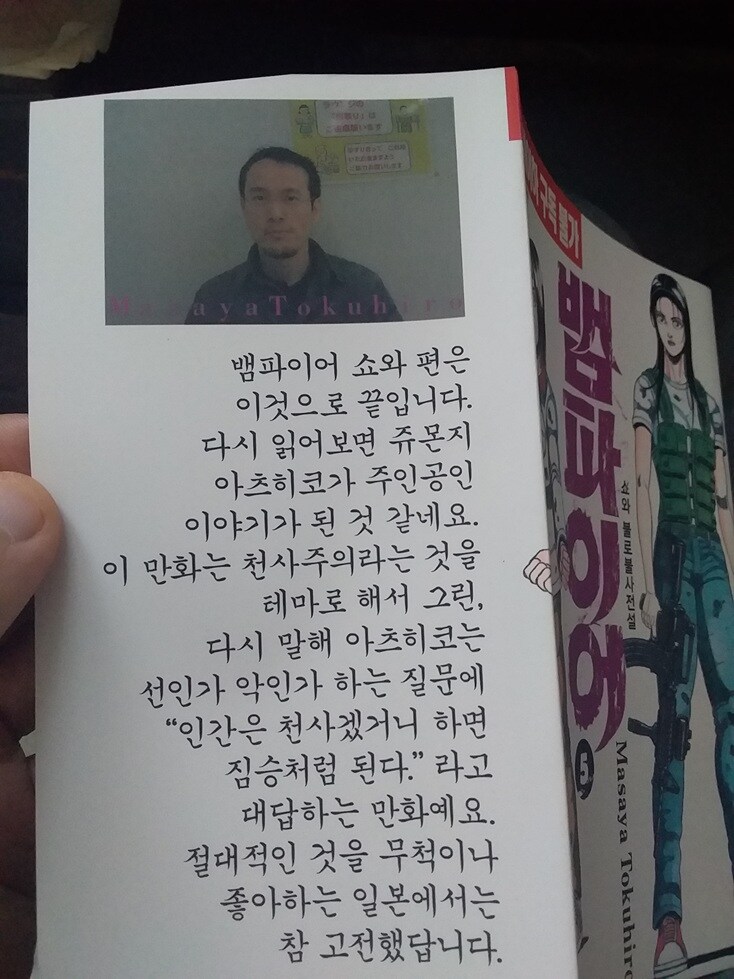 Masaya Tokuhiro
뱀파이어 쇼와 편은
이것으로 끝입니다.
다시 읽어보면 쥬몬지
아츠히코가 주인공인
이야기가 된 것 같네요.
이 만화는 천사주의라는 것을
테마로 해서 그린,
다시 말해 아츠히코는
선인가 악인가 하는 질문에
“인간은 천사겠거니 하면
짐승처럼 된다.” 라고
대답하는 만화예요.
절대적인 것을 무척이나
좋아하는 일본에서는
참 고전했답니다.
구독 불가
뱀파이어
쇼와 불로불사전설
5
Masaya Tokuhir